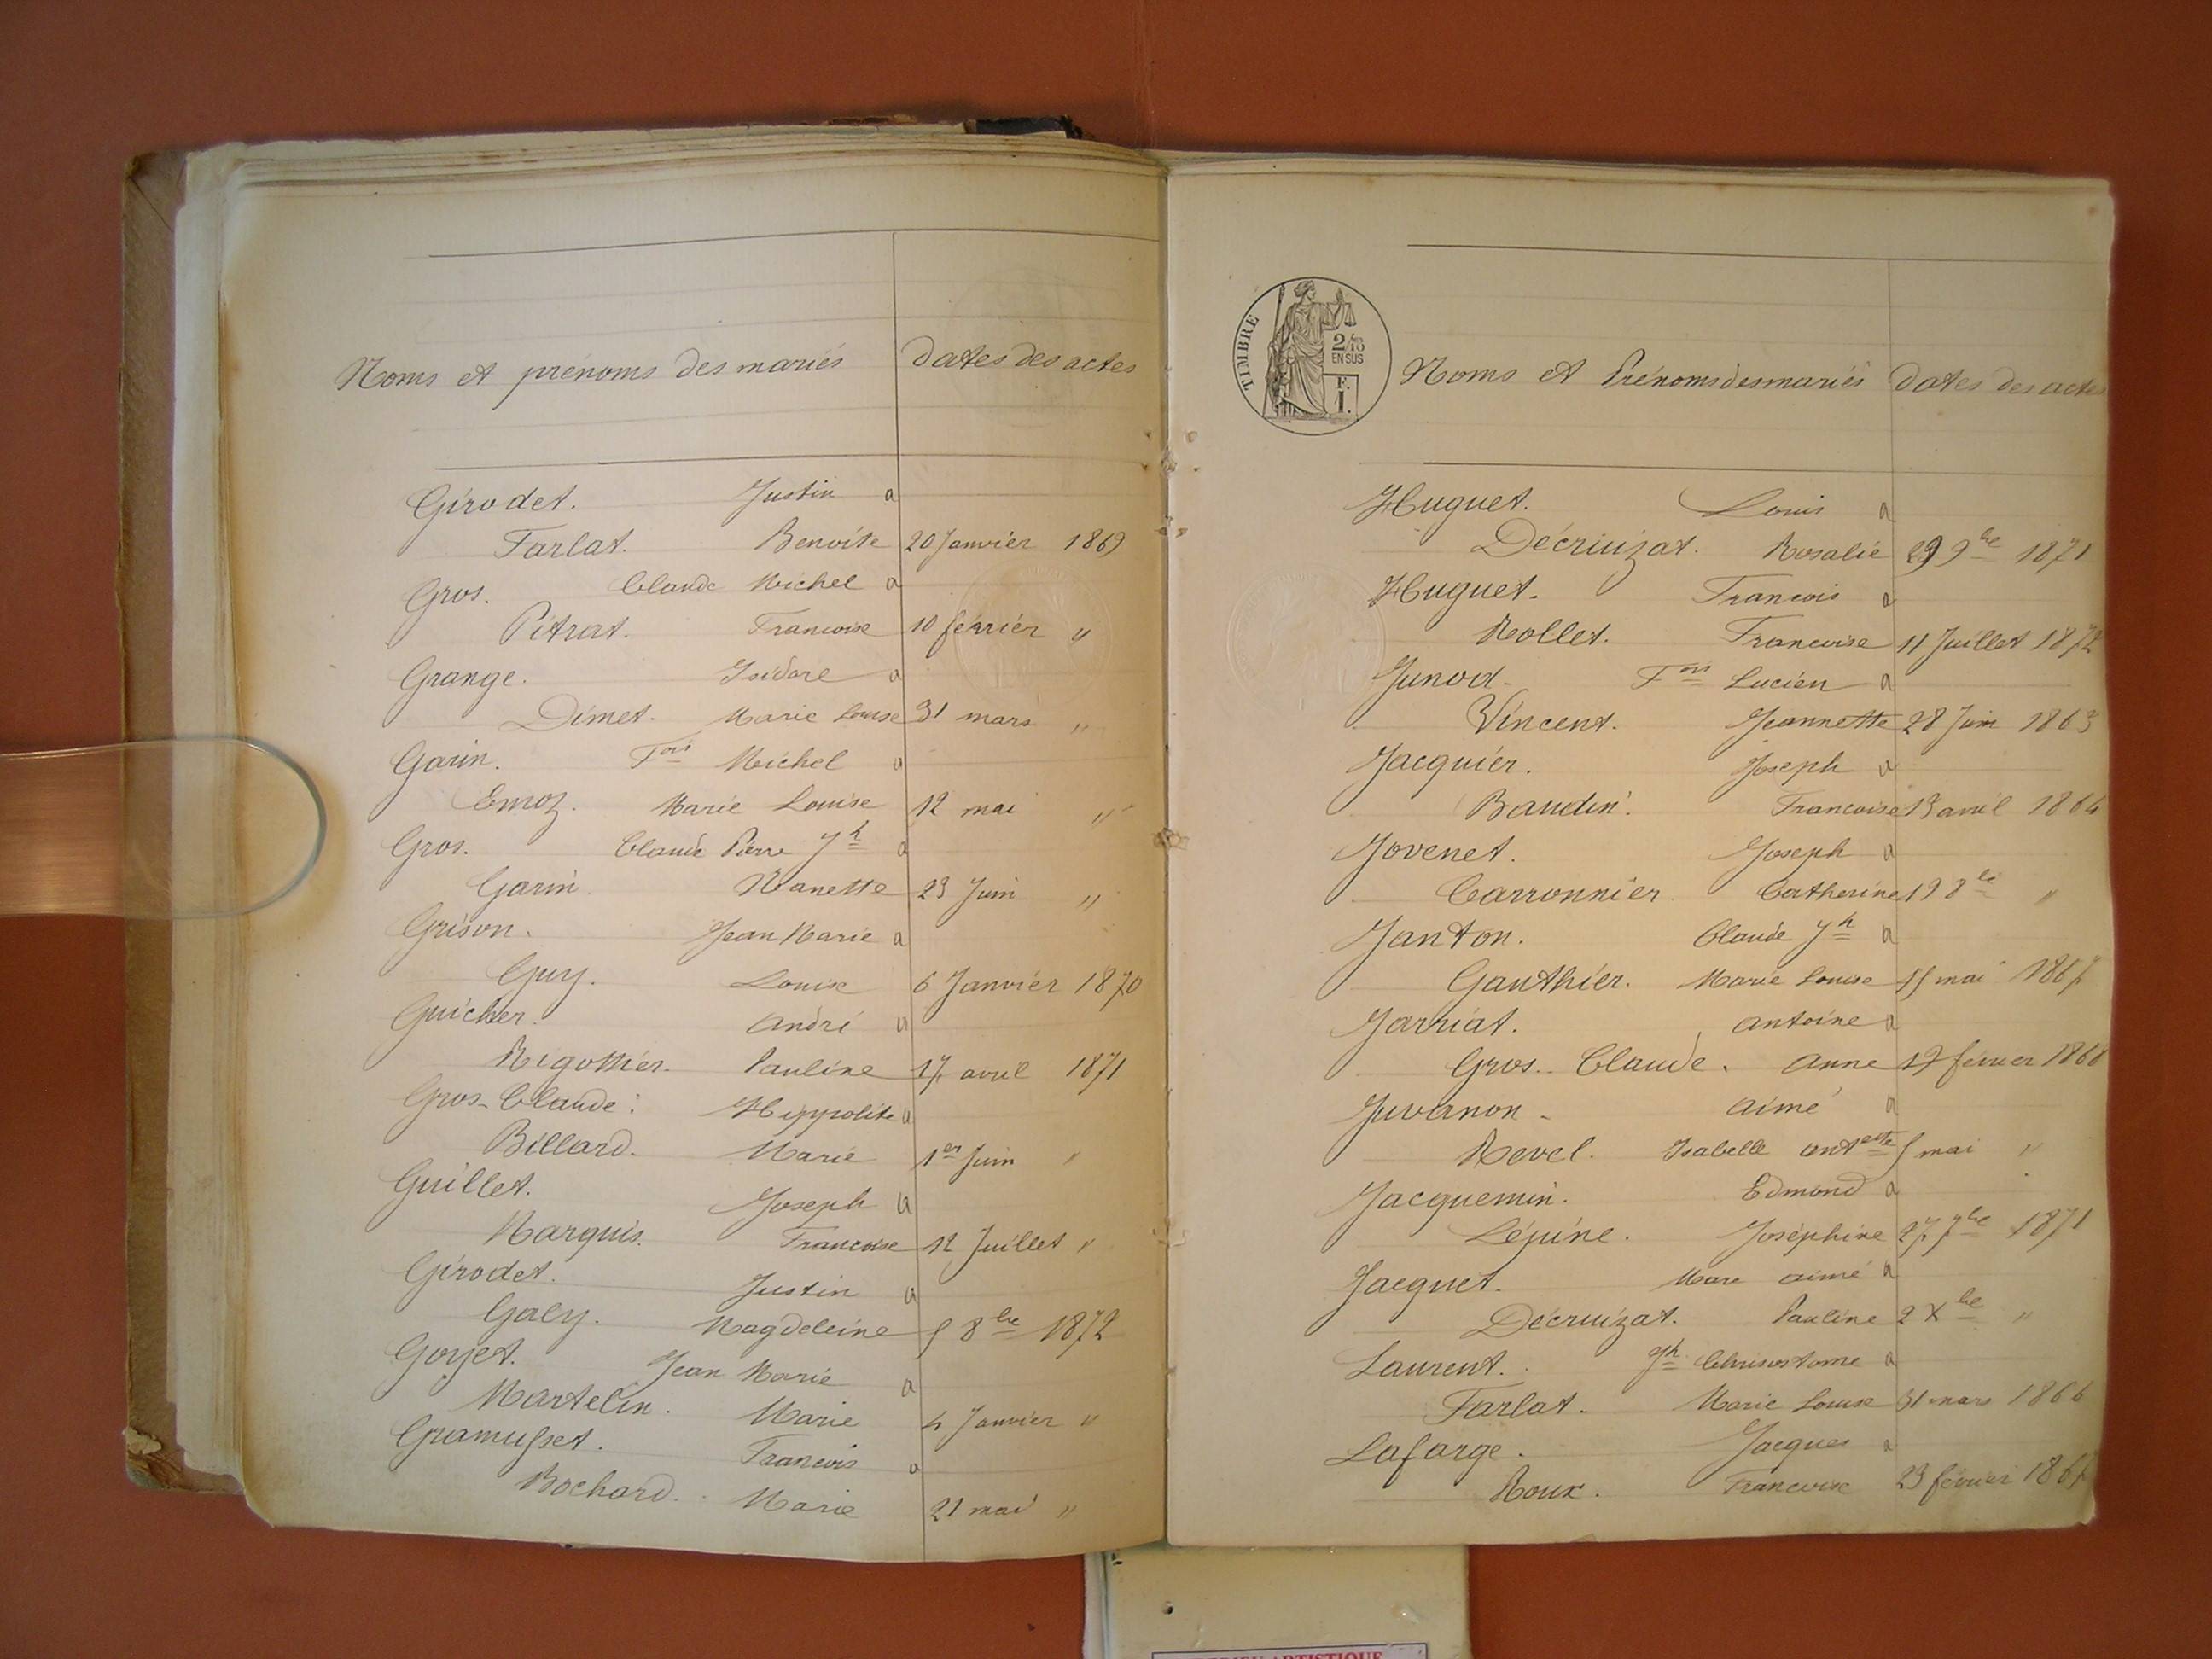 Noms et prénoms des mariés dates des actes
Girodet. Justin a
Farlat. Benoite 20 Janvier 1869
Gros. Claude Michel a
Pitrat. Francoise 10 février "
Grange. Isidore a
Dimet. Marie Louise 31 mars "
Garin. Fois Michel a
Emoz. Marie Louise 12 mai "
Gros. Claude Pierre Jh a
Garin. Nanette 23 Juin "
Grison. Jean Marie a
Guy. Louise 6 Janvier 1870
Guicher. André a
Rigottier. Pauline 17 avril 1871
Gros-Claude. Hippolite a
Billard. Marie 1er Juin "
Guillet. Joseph a
Marquis. Francoise 12 Juillet "
Girodet. Justin a
Galy. Magdeleine 5 8bre 1872
Goyet. Jean Marie a
Martelin. Marie 4 Janvier "
Gramusset. Francois a
Bochard. Marie 21 mai "
TIMBRE
2/10
EN SUS
F.
1.
Noms et Prénoms des mariés dates des actes
Huguet. Louis a
Décriuizat. Rosalie 29 9bre 1871
Huguet. Francois a
Rollet. Francoise 11 Juillet 1872
Junod. Fois Lucien a
Vincent. Jeannette 28 Juin 1863
Jacquier. Joseph a
Baudin. Francoise 13 avril 1864
Jovenet. Joseph a
Carronnier. Catherine 19 8bre "
Janton. Claude Jh a
Gauthier. Marie Louise 15 mai 1867
Jarriat. Antoine a
Gros-Claude. Anne 19 février 1868
Juvanon. Aimé a
Revel. Isabelle antette 5 mai "
Jacquemin. Edmond a
Lépine. Joséphine 27 7bre 1871
Jacquet. Marc aimé a
Décruizat. Pauline 2 Xbre "
Laurent. Jh Chrisostome a
Farlat. Marie Louise 31 mars 1866
Lafarge. Jacques a
Roux. Francoise 23 février 1867